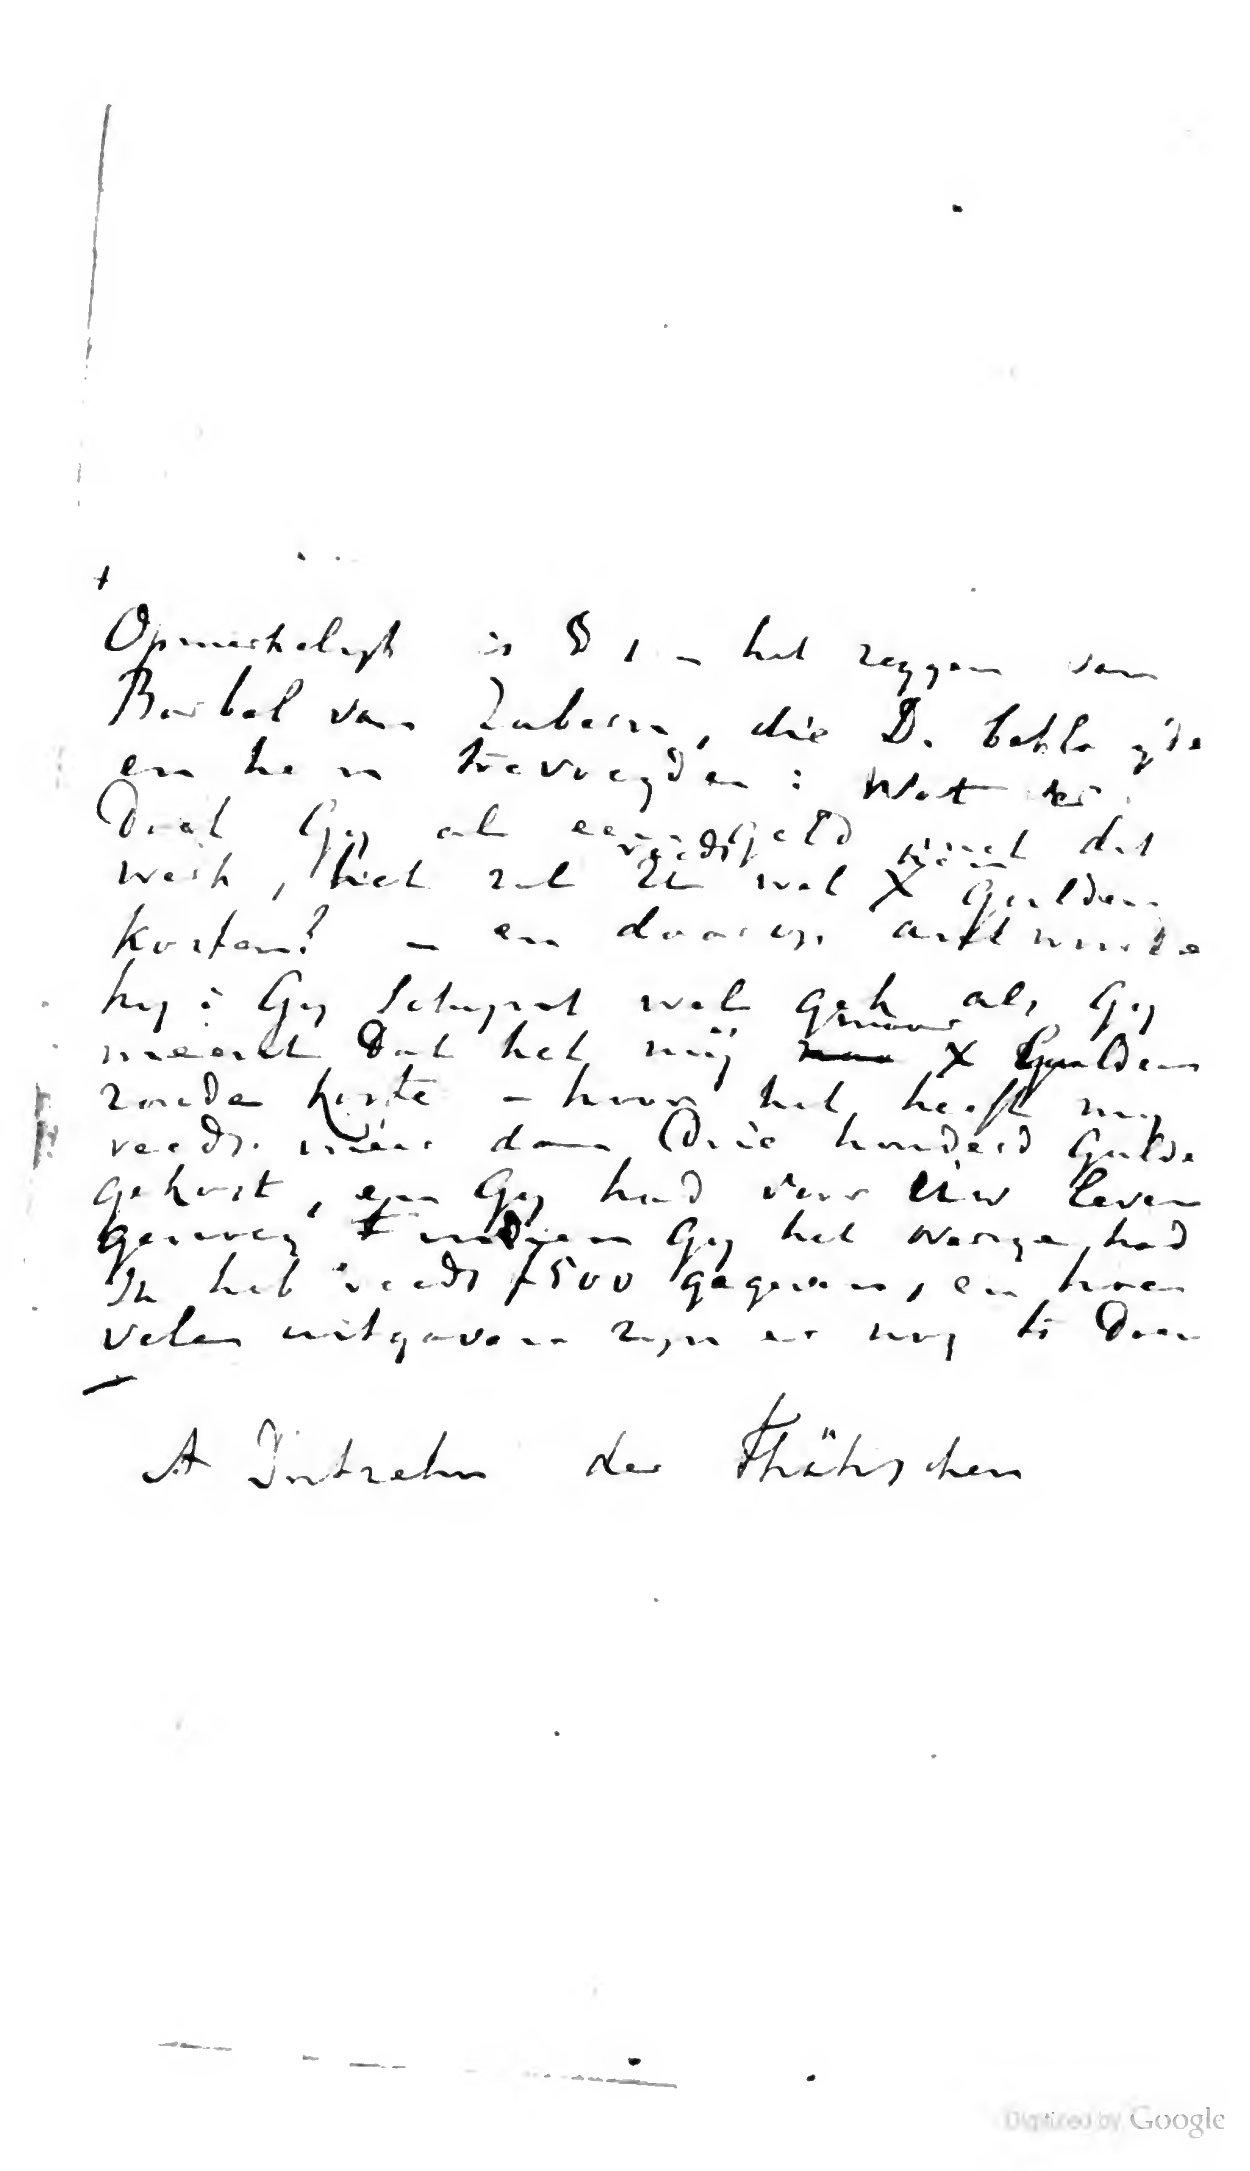 +
Opmerkelijk is § 1 – het zeggen van
Barbel van Zabern, die D. beklaagde
en hem toevoegden: Wat
Doet Gij al een geld met dat
reeds
werk, het zal U wel X Gulden
kosten? – en daarop antwoorde
hij: Gij schijnt wel gek als Gij
meent Dat het mij X Gulden
zoude koste – het heeft mij
reeds meer dan Drie honderd Gulde
gekost, en Gij had voor Uw leven
genoeg indien Gij het overige had
Ik heb reeds f 500 gegeven, en hoe
velen uitgaven zijn er nog te Doen
—
A der
Digitized by Google